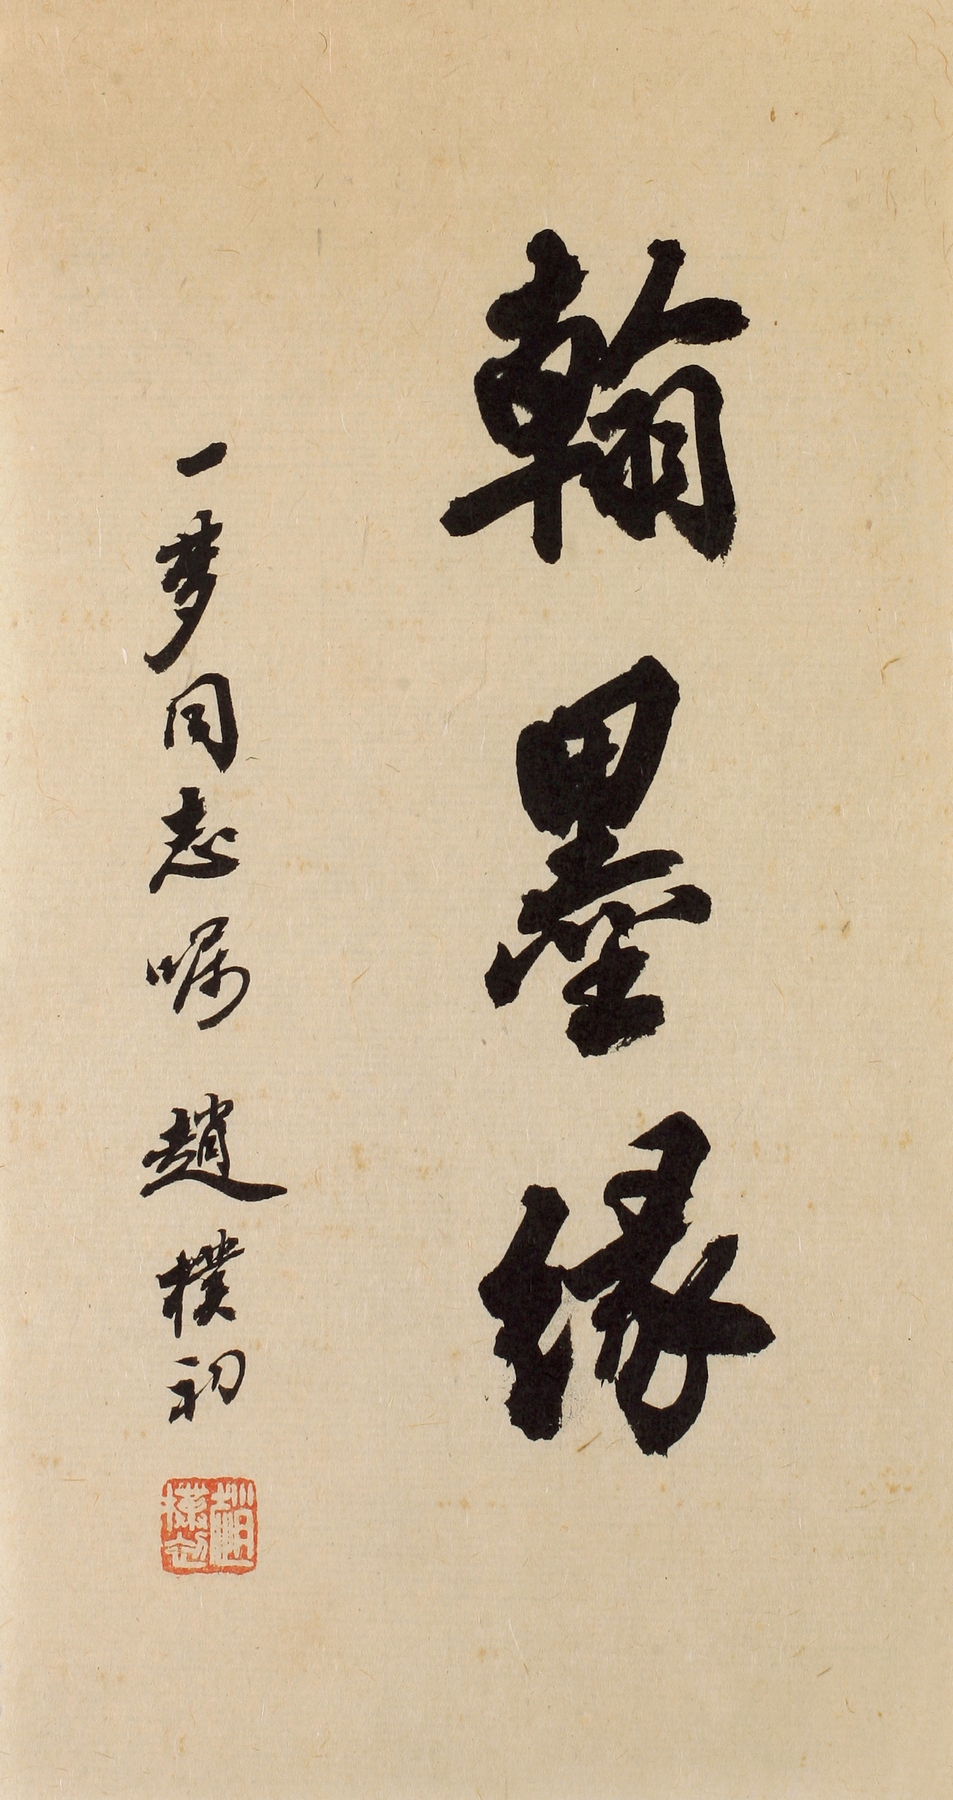 翰墨缘
一梦同志嘱 趙樸初
趙樸初